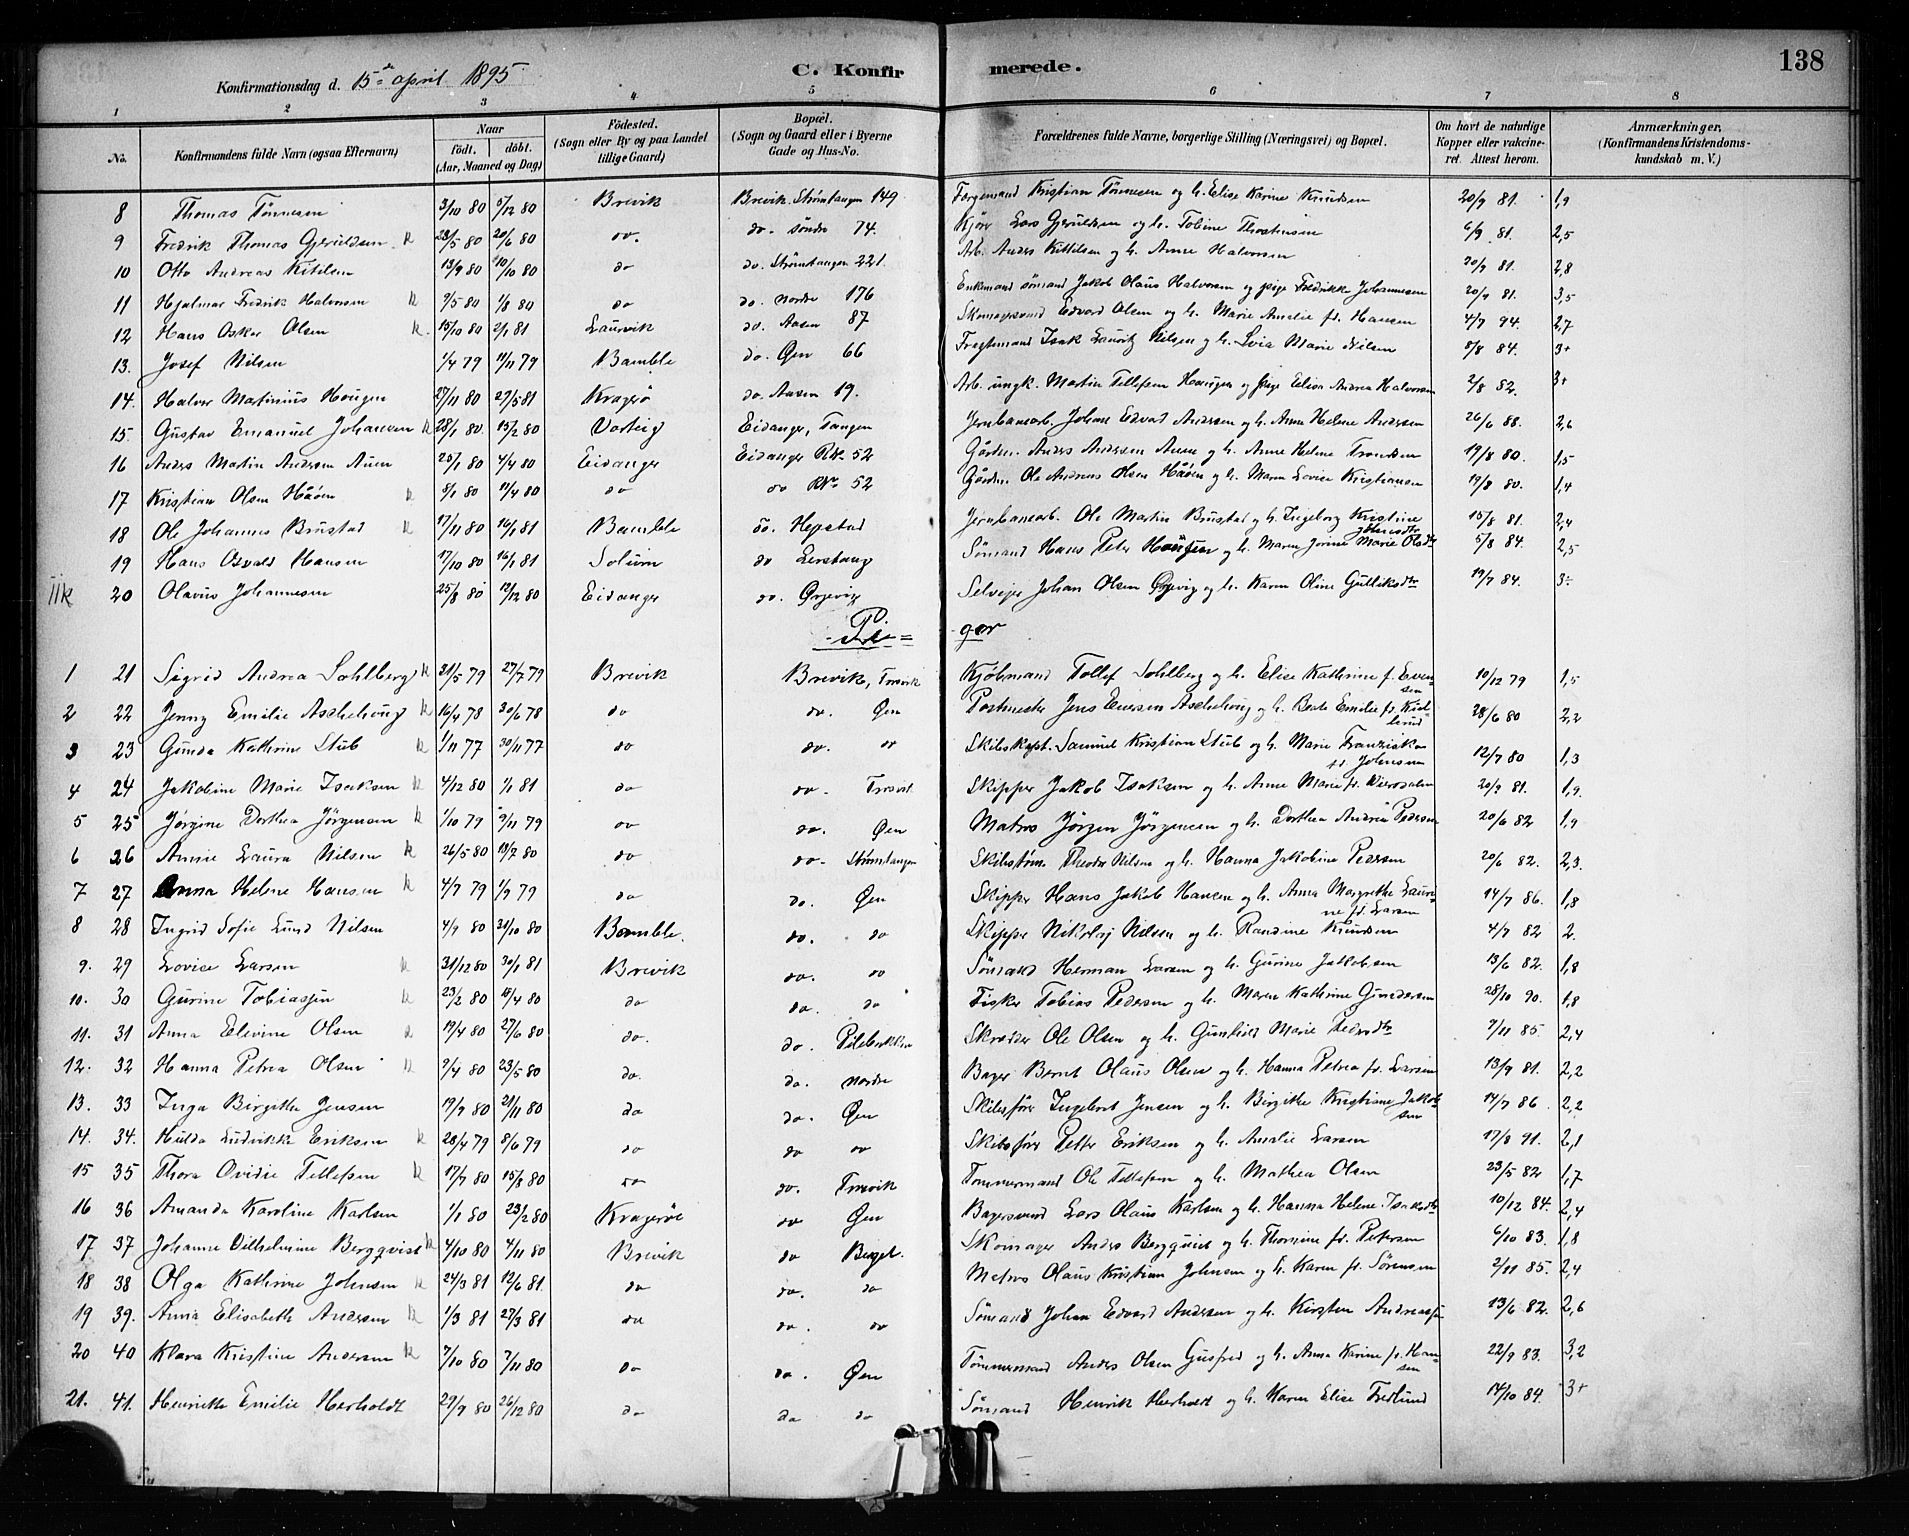 138
Konfirmationsdag d. 15de april 1895 C. Konfirmerede.
1 2 3 4 5 6 7 8
No. Konfirmandens fulde Navn (ogsaa Efternavn) Naar födt. döbt. (Aar, Maaned og Dag) Födested. (Sogn eller By og paa Landet tillige Gaard) Bopæl. (Sogn og Gaard eller i Byerne Gade og Hus-No. Forældrenes fulde Navne, borgerlige Stilling (Næringsvei) og Bopæl. Om havt de naturlige Kopper eller vaccineret. Attest herom. Anmærkninger, (Konfirmandens Kristendomskundskab m. V.)
8 Thomas Tönnesen 3/10 80 5/12 80 Brevik Brevik. Strömtangen 149 Kristian Tönnesen og h. Elise Karine Knudsen 20/9 81. 1,9
9 Fredrik Thomas Gjeruldsen k 23/5 80 20/6 80 do. do. söndre 74. Kjörer Lars Gjeruldsen og h. Tobine Thostensen 6/9 81. 2,5
10 Otto Andreas Kittilsen 13/9 80 10/10 80 do do. Strömtangen 221. Arb. Anders Kittilsen og h. Anne Halvorsen 20/9 81. 2,8
11 Hjalmar Fredrik Halvorsen k 9/5 80 1/8 80 do do. Nordre 176 Enkemand sömand Jakob Olaus Halvorsen og pige Fredrikke Johannesen 20/9 81. 3,5
12 Hans Oskar Olsen k. 15/10 80 2/1 81 Laurvik do. Aasen 87 Skomagersvend Edvard Olsen og h. Marie Amalie f. Hansen 4/7 94. 2,7
13. Josef Nilsen 1/4 79 11/11 79 Bamble do. Øen 66 Fragtemand Isak Lauritz Nilsen og h. Marie Nilsen 8/8 84. 3+
14. Halvor Martinius Haugen 27/11 80 27/5 81 Kragerö do. Aasen 19. Arb. ungk. Martin Tellefsen Haugen og pige Elisa Andrea Halvorsen 2/8 82. 3+
15. Gustav Emanuel Johansen k 28/1 80. 15/2 80 Varteig Eidanger, Tangen Jernbanearb. Johan Edvard Andersen og h. Anna Helene Andersen 26/6 88. 2,6
16 Anders Martin Andersen Auen 25/1 80 4/4 80 Eidanger Eidanger RNo 52 Gårdm. Anders Andersen Auen og h. Anne Helene Trondsen 19/8 80. 1,5
17 Kristian Olsen Håöen k 8/1 80 11/4 80 do do RNo 52 Gårdm. Ole Andreas Olsen Håöen og h. Maren Lovise Kristiansen 19/8 80. 1,4
18 Ole Johannes Brustad k 17/11 80 16/1 81 Bamble do. Hegstad Jernbanearb. Ole Martin Brustad og h. Ingeborg Kristine 15/8 81. 2,4
19 Hans Osvald Hansen 17/10 80 16/1 81 Solum do Lerstang Sömand Hans Peter Hansen og h. Maren Jorine Marie Olsdtr 5/8 84. 2,5
iik 20 Olavus Johannesen 25/8 80 12/12 80 Eidanger do. Ørjevig Selveier Johan Olsen Ørjevig og h. Karen Oline Gulliksdtr 19/7 84. 3÷
Piger
1 21 Sigrid Andrea Sohlberg k 31/5 79 27/7 79 Brevik Brevik, Trosvik Kjöbmand Tollef Sohlberg og h. Elise Kathrine f. Evensen 10/12 79 1,5
2 22 Jenny Emilie Aschehoug k 16/4 78 30/6 78 do do. Øen Postmester Jens Iversen Aschehoug og h. Beate Emilie f. 28/6 80 2,2
3 23 Gunda Kathrine Stub k 1/11 77 30/11 77 do do. do Skibskapt. Samuel Kristian Stub og h. Marie Franziska f. Johnsen 12/7 80 1,3
4 24 Jakobine Marie Isaksen k 4/12 80 1/1 81 do do. Trosvik Skipper Jakob Isaksen og h. Anne Marie f. 20/9 81. 1,9.
5 25 Jörgine Dorthea Jörgensen k 1/10 79 9/11 79 do do. Øen Matros Jörgen Jörgensen og h. Dorthea Andrea Pedersen 20/6 82 1,9
6 26 Annie Laura Nilsen k 26/5 80 18/7 80 do do. Strömtangen Skibstöm. Theodor Nilsen og h. Hanna Jakobine Pedersen 20/6 82. 2,3.
7 27 Anna Helene Hansen k 4/7 79 1/9 79 do do. Øen Skipper Hans Jakob Hansen og h. Anna Margrethe Laurine f. Larsen 14/7 86. 1,8
8 28 Ingrid Sofie Lund Nilsen 4/9 80 31/10 80 Bamble. do. do Skipper Nikolaj Nilsen og h. Randine Knudsen 4/7 82 2.
9. 29 Lovise Larsen k 31/12 80 30/1 81 Brevik do. do Sömand Herman Larsen og h. Gurine Jakobsen 13/6 82. 1,8
10. 30 Gurine Tobiassen k 23/2 80 18/4 80 do do. do Fisker Tobias Pedersen og h. Maren Kathrine Gundersen 28/10 90. 1,8
11. 31 Anna Elevine Olsen k 19/4 80 27/6 80 do. do. Pilebakken Skrædder Ole Olsen og h. Gunhild Marie Pedersdtr 9/11 85. 2,4
12. 32 Hanna Petrea Olsen k 9/4 80 23/5 80 do. do. Nordre Bager Bernt Olaus Olsen og h. Hanna Petrea f. Larsen 13/9 81. 2,2
13. 33 Inga Birgithe Jensen 19/9 80 21/11 80 do do. Øen Skibsförer Ingebret Jensen og h. Birgithe Kristiane Jakobsen 14/7 86. 2,2
14. 34. Hulda Ludvikke Eriksen k 28/4 79 8/6 79 do do do Skibsförer Petter Eriksen og h. Amalie Larsen 17/8 91. 2,1
15 35 Thora Ovidie Tellefsen k 17/7 80 15/8 80 do do. Trosvik Tömmermand Ole Tellefsen og h. Mathea Olsen 23/5 82 1,7
16 36 Amanda Karoline Karlsen 1/1 80 23/2 80 Krageröe do Øen Bagersvend Lars Olaus Karlsen og h. Hanna Helene Isaksdtr 10/12 84. 2,4
17 37 Johanne Vilhelmine Bergqvist k 4/10 80 4/11 80 Brevik do Berget. Skomager Anders Bergquist og h. Thomine f. Petersen 6/10 83. 1,8
18 38 Olga Kathrine Johnsen k 24/3 81 12/6 81 do do. do Matros Olaus Kristian Johnsen og h. Karen f. Sörensen 2/11 85. 2,4
19 39. Anna Elisabeth Andersen k 1/3 81 27/3 81 do do. do Sömand Johan Edvard Andersen og h. Kirsten Andreassen 13/6 82. 2,6
20 40 Klara Kristine Andersen k 7/10 80 7/11 80 do do. Øen Tömmermand Anders Olsen Gusfred og h. Anna Karine f. Hansen 22/9 83. 3,2
21. 41. Henriette Emilie Herholdt 29/9 80 26/12 80 do do do Sömand Henrik Herholdt og h. Karen Elise Fredlund 14/10 84. 3+